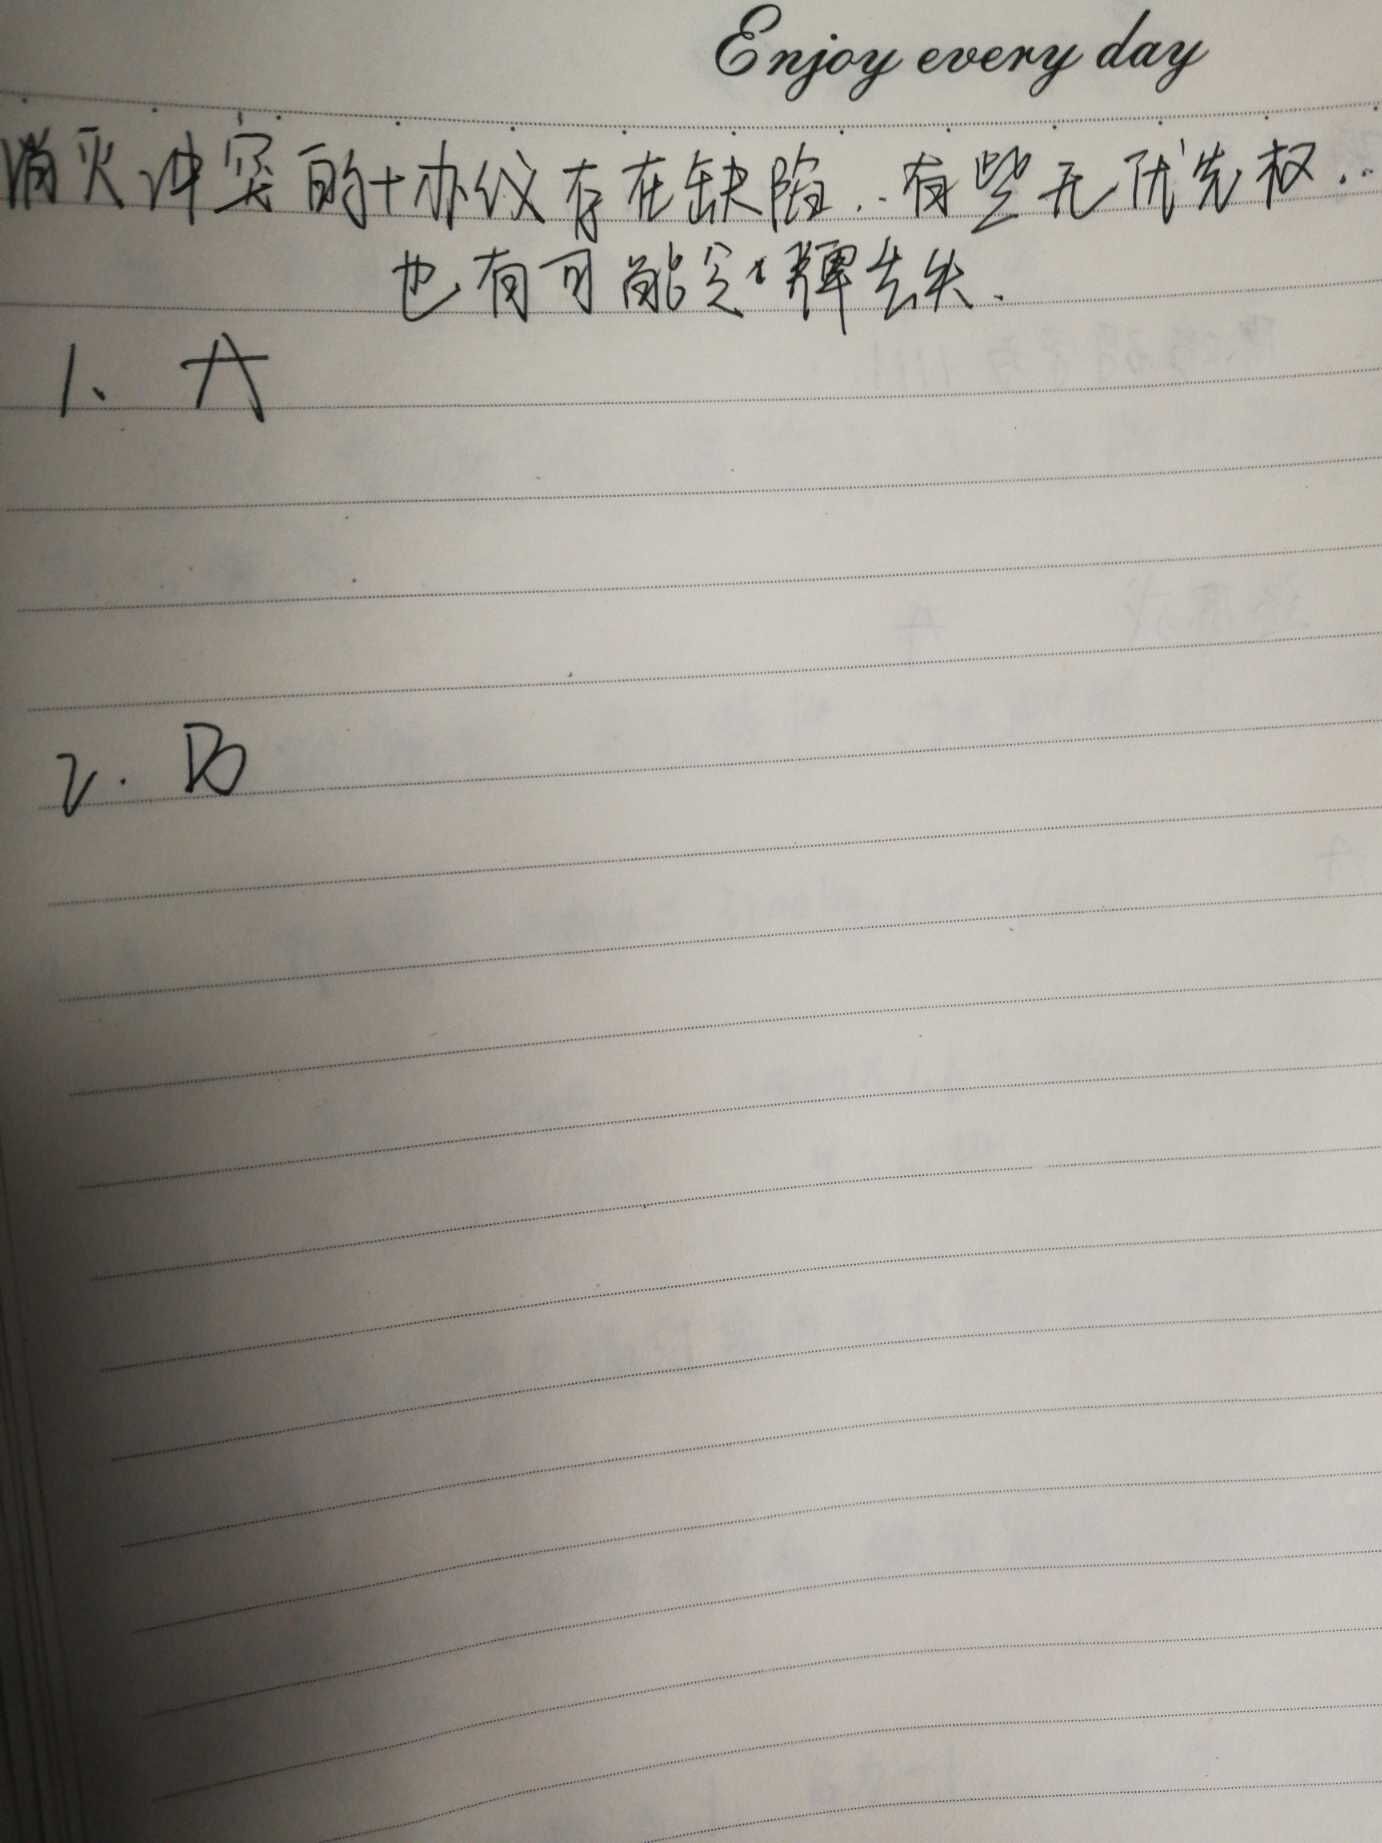 Enjoy every day
消灭冲突的协议存在缺陷..有些无优先权..
也有可能令牌丢失.
1、A
2. B